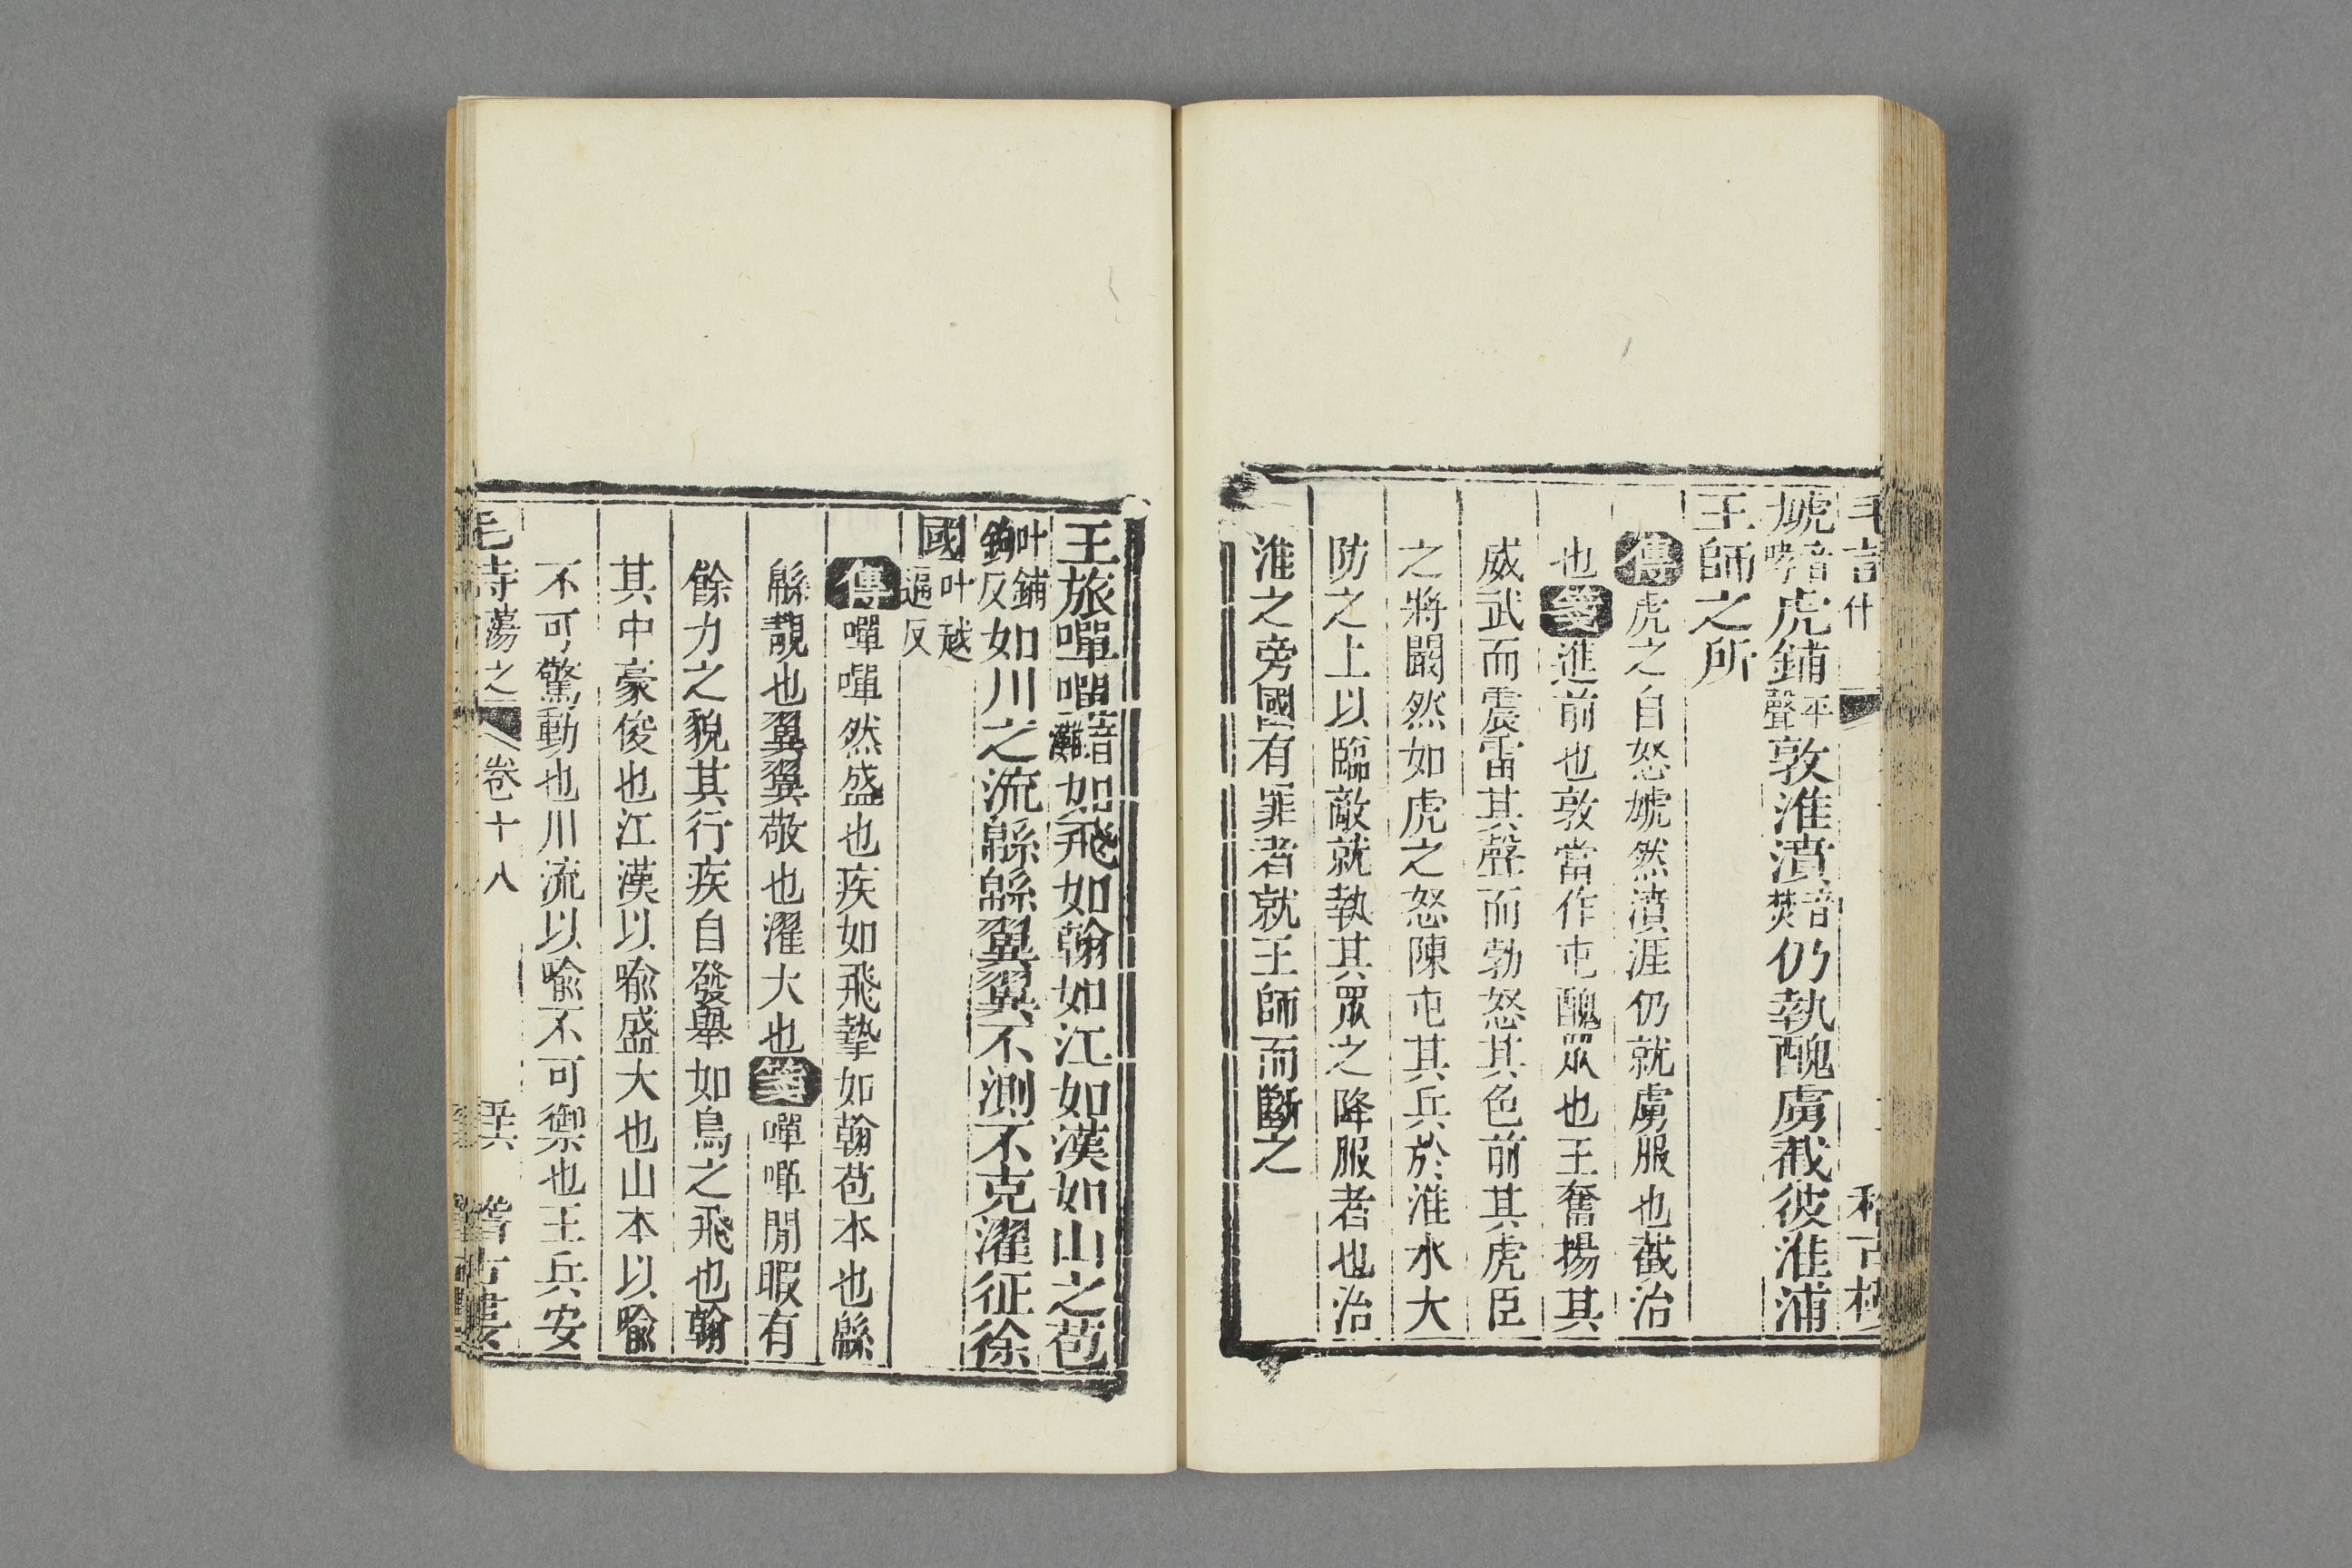 虓音嘐虎鋪平聲敦淮濆音焚仍執醜虜截彼淮浦
王師之所
傳虎之自怒虓然濆涯仍就虜服也截治
也箋進前也敦當作屯醜眾也王奮揚其
威武而震雷其聲而勃怒其色前其虎臣
之將闞然如虎之怒陳屯其兵於淮水大
防之上以臨敵就執其眾之降服者也治
淮之旁國有罪者就王師而斷之
王旅嘽嘽音灘如飛如翰如江如漢如山之苞
叶鋪鉤反如川之流緜緜翼翼不測不克濯征徐
國叶越逼反
傳嘽嘽然盛也疾如飛摯如翰苞本也緜
緜靚也翼翼敬也濯大也箋嘽嘽閒暇有
餘力之貌其行疾自發舉如鳥之飛也翰
其中豪俊也江漢以喻盛大也山本以喻
不可驚動也川流以喻不可禦也王兵安
毛詩蕩之 卷十八 稽古樓